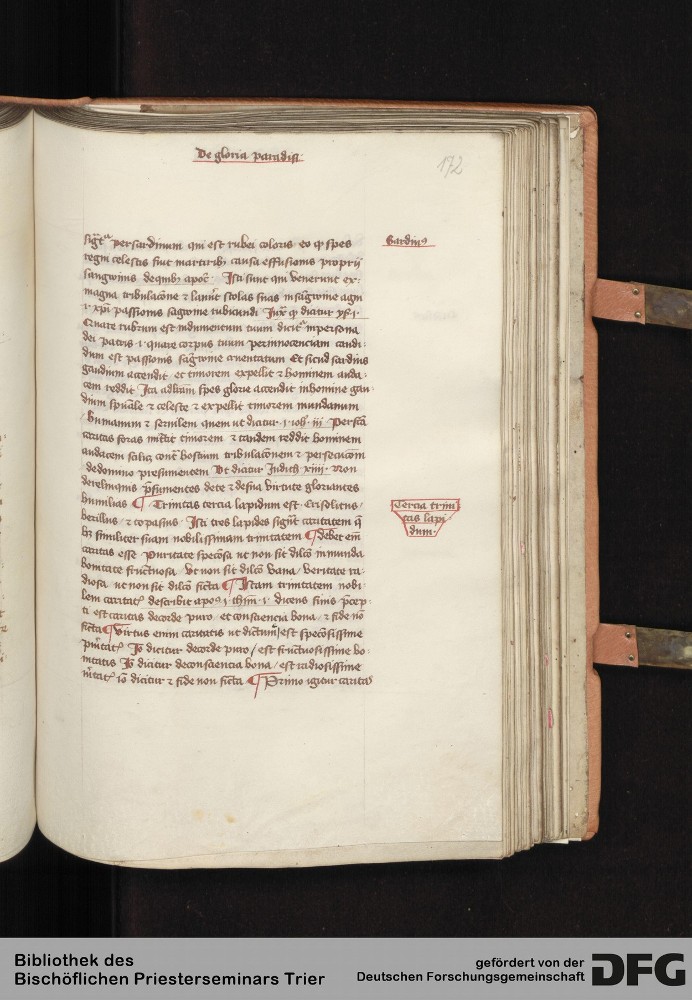 De gloria paradisi
172
sigt per sardinum qui est rubei coloris eo qͥ spes
regni celestis fiut martiribꝫ causa effusionis proprij
sanguinis de quibꝫ apoc̄ · Isti sunt qui venerunt ex·
magna tribulacōne ⁊ lauer̄t stolas suas in sāgwine agni
·i· xp̄i passionis sagwine rubicundi
Quare rubrum est indumentum tuum dicit̄ in persona
dei patris ·i· quare corpus tuum per innocenciam candi·
dum est passionis sāgwine cruentatum Et sicud sardius
gaudium accendit et timorem expellit ⁊ hominem auda·
cem reddit Ita spes glorie accendit in homine gau·
dium spūale ⁊ celeste ⁊ expellit timorem mundanum
humanum ⁊ seruilem quem ut dicitur ·i· ioh̄ · iii · perfcā
caritas foras mittit timorem ⁊ tandem reddit hominem
audacem scilicꝫ cont̄ hostium tribulacōnem ⁊ persecucōm
de domino presumentem Ut dicitur Judith xiiij · Non
derelinquis p̄sumentes de te ⁊ de sua virtute gloriantes
humilias ¶ Trinitas tercia lapidum est · Crisolitus /
berillus / ⁊ topasius · Isti tres lapides signāt caritatem q̄
hꝫ similiter suam nobilissimam trinitatem ¶ debet em̄
caritas esse puritate speciosa ut non sit dilcō inmunda
bonitate fructuosa / Ut non sit dilcō vana / veritate ra·
diosa ut non sit dilcō ficta ¶ Istam trinitatem nobi·
lem caritatꝭ describit apoꝰs ·i· thim̄ ·i· dicens finis p̄cep·
ti est caritas de corde puro / et consciencia bona / ⁊ fide nō
ficta ¶ Virtus enim caritatis ut dictum est speciosissime
puritatꝭ Iō dicitur de corde puro / est fructuosissime bo·
nitatis Iō dicitur de consciencia bona / est radiosissime
v̄itatꝭ iō dicitur ⁊ fide non ficta ¶ Primo igitur caritas
Sardinꝰ
Tercia trini
tas lapi
dum·
Bibliothek des
Bischöflichen Priesterseminars Trier
gefördert von der
Deutschen Forschungsgemeinschaft
DFG